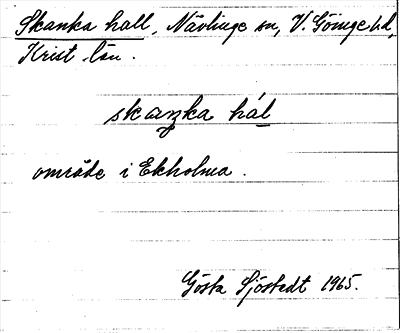 Skanka hall, Nävlinge sn, V. Göinge hd,
Krist. län.
skaŋka hál
område i Ekholma.
Gösta Sjöstedt 1965.